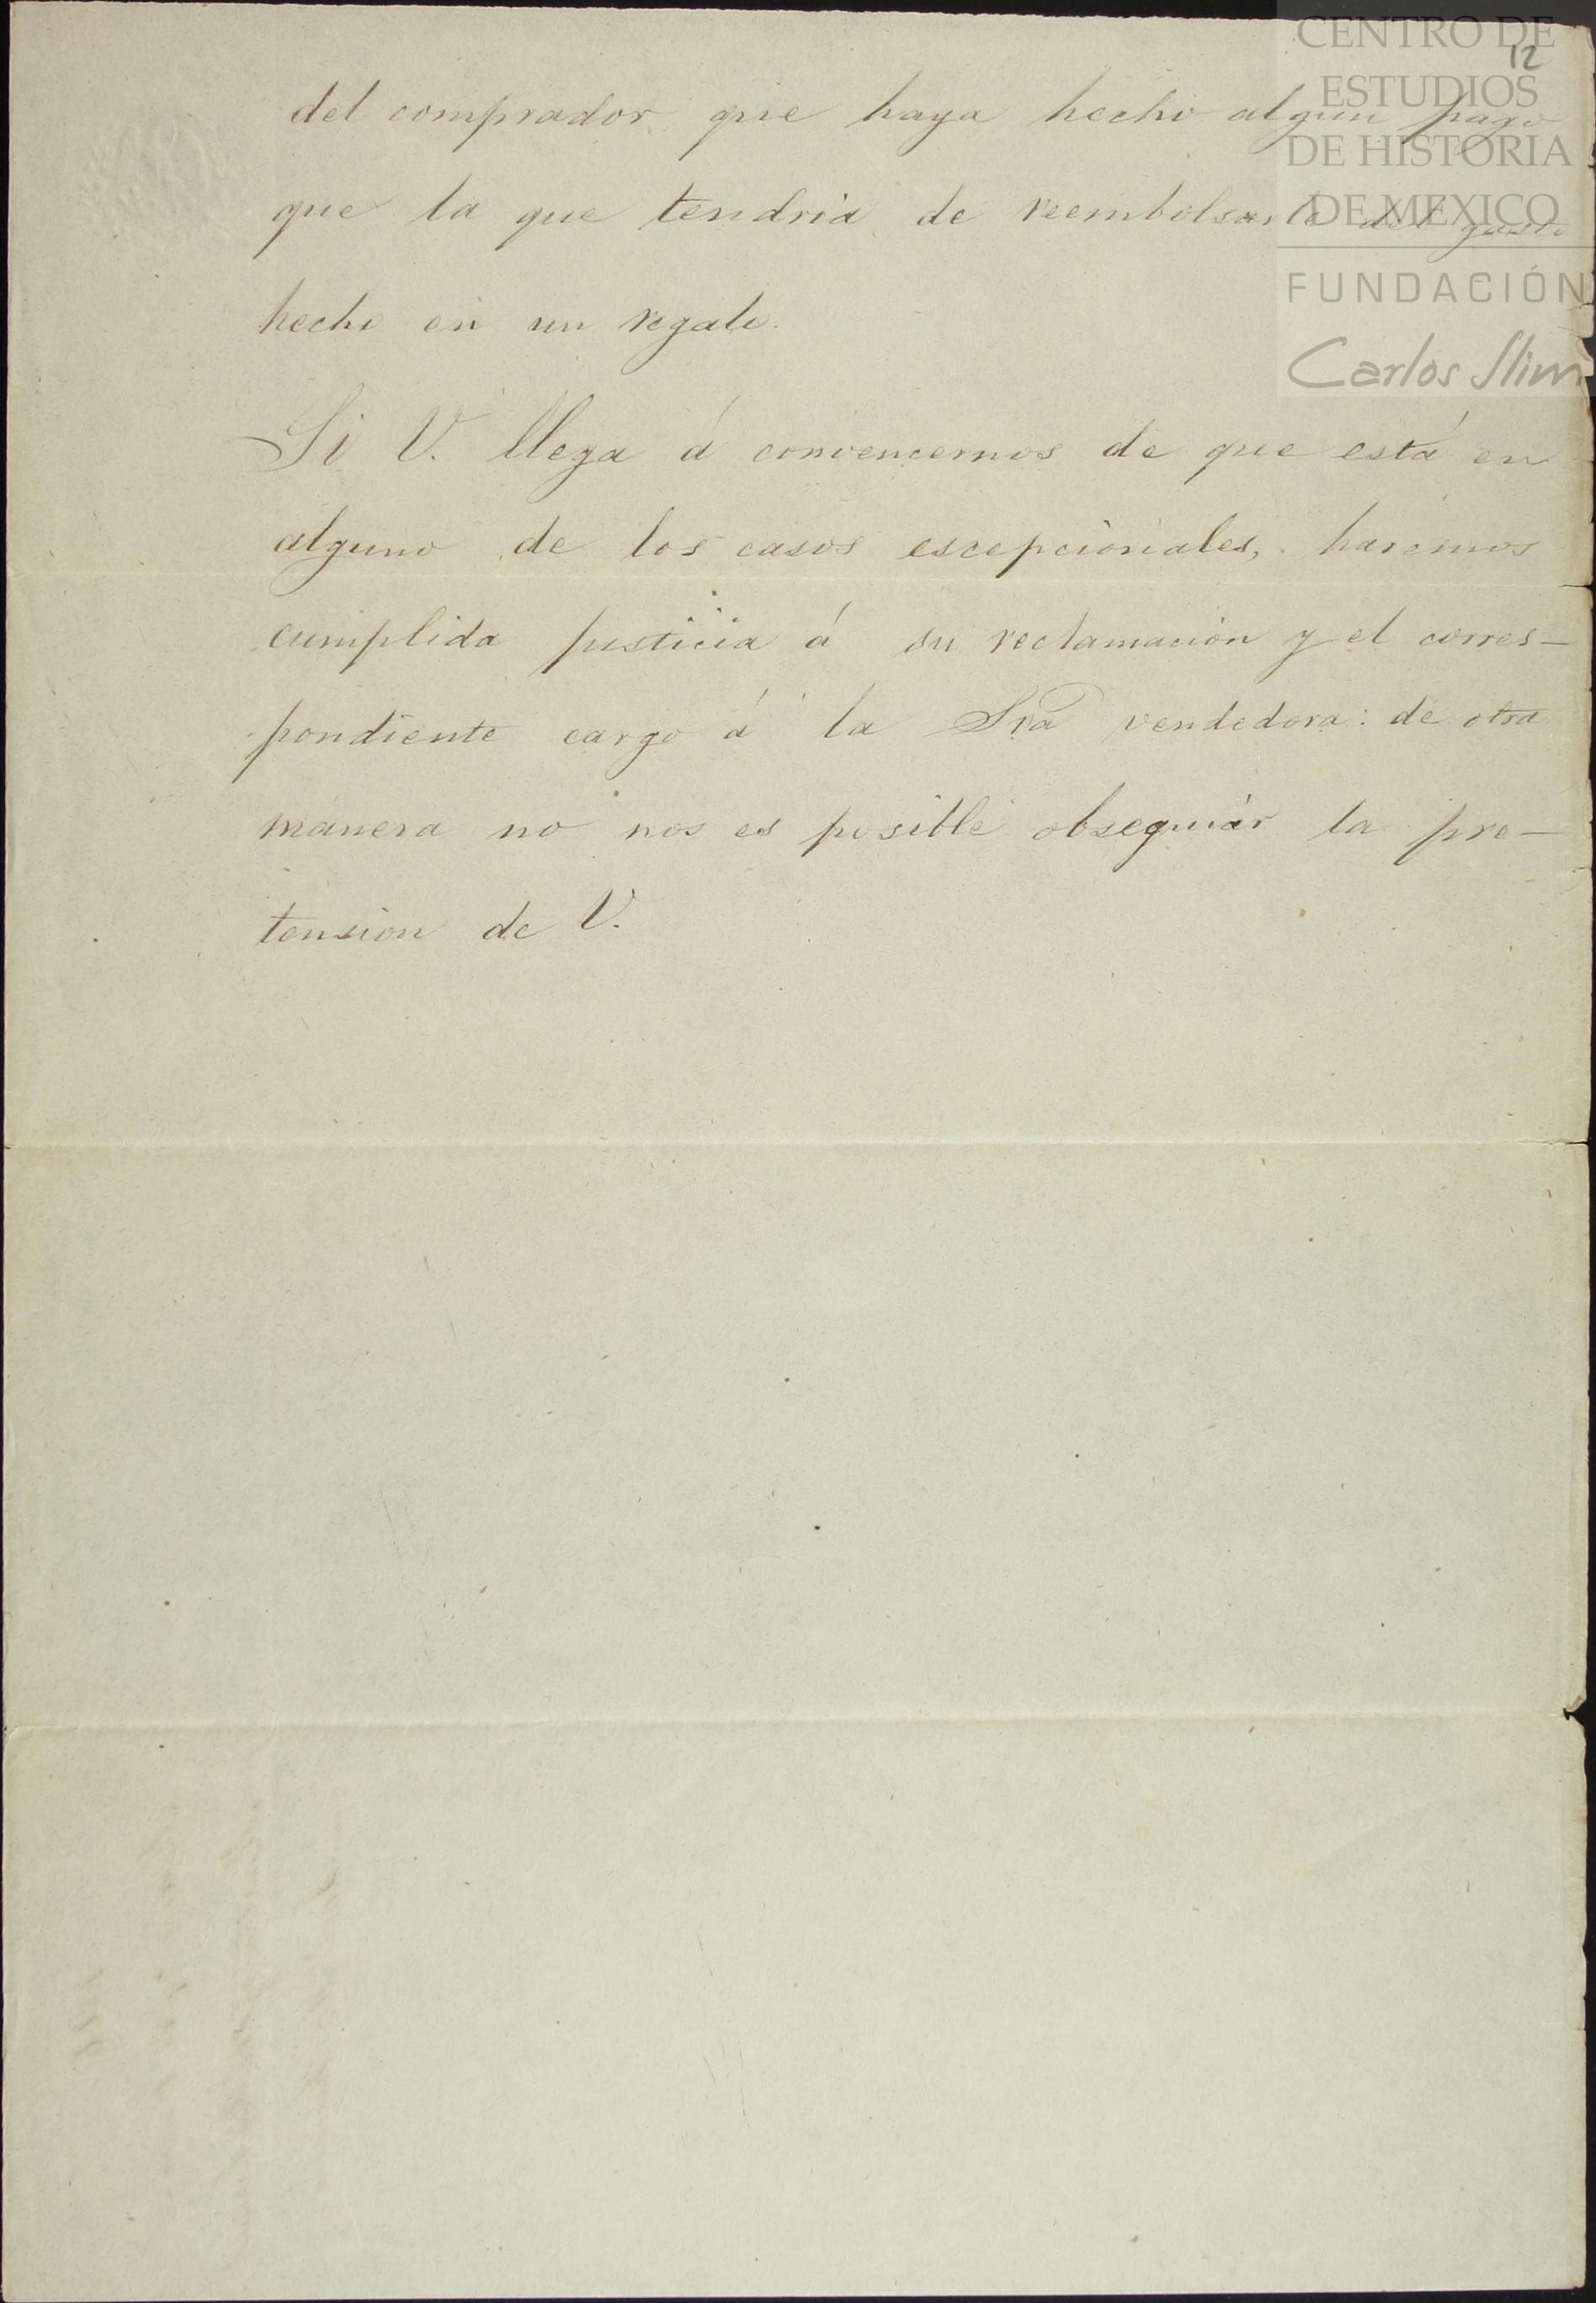 CENTRO DE
ESTUDIOS
DE HISTORIA
DE MEXICO
FUNDACIÓN
Carlos Slim
12
del comprador que haya hecho algun pago
que la que tendria de reembolsarle del gasto
hecho en un regalo.
Si V. llega á convencernos de que está en
alguno de los casos escepcionales, haremos
cumplida justicia á su reclamación y el corres-
pondiente cargo á la Sra vendedora: de otra
manera no nos es posible obsequiar la pre-
tension de V.